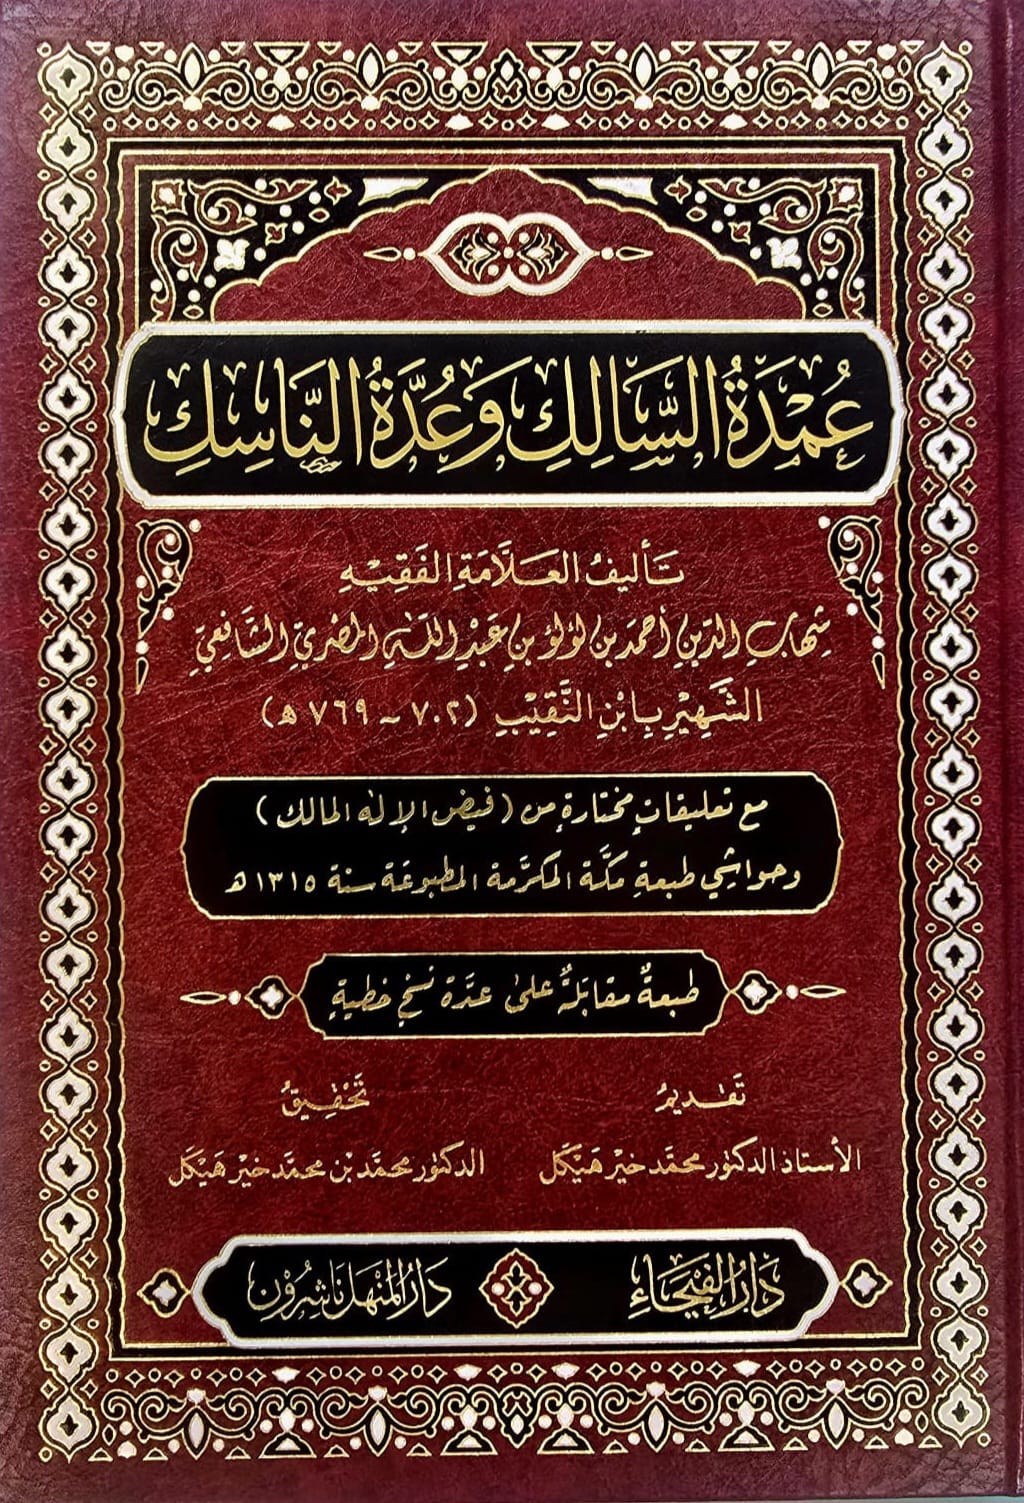 عُمْدَةُ السَّالِكِ وَعُدَّةُ النَّاسِكِ
تَأليفُ العَلَّامَةِ الفَقِيْهِ
شِهَابِ الدِّينِ أَحْمَد بن لُؤلُؤ بنِ عَبْدِ اللّٰهِ المِصْرِيِّ الشَّافِعِيِّ
الشَّهِيْرِ بِابْنِ النَّقِيْبِ (٧٠٢ - ٧٦٩ ه)
مع تعليقاتٍ مختارةٍ من (فيض الإله المالك)
وحواشي طبعةِ مكَّة المكرَّمة المطبوعَة سنة ١٣١٥ ه
طبعةٌ مقابَلةٌ على عدَّة نسَخٍ خطيةٍ
تَقديمُ
تَحْقِيقُ
الأستاذ الدكتور محمَّد خيْر هَيْكَل
الدكتور محمَّد بْن محمَّد خيْر هَيْكَل
دَارُ الفَيْحَاءِ
دَارُ المَنْهَل نَاشِرُوْن